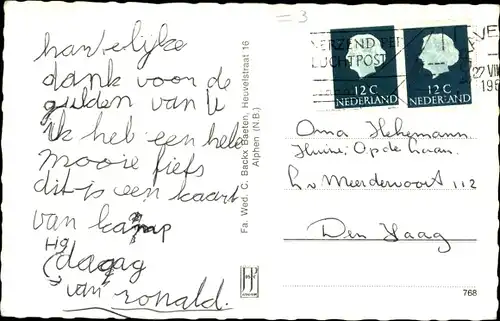 = 3
hartelijke
dank voor de
gulden van U
ik heb een hele
mooie fiets
dit is een kaart
van kamp
Hg
dagag
van ronald.
Fa. Wed. C. Backx Baeten, Heuvelstraat 16
Alphen (N.B.)
VERZEND PER
LUCHTPOST
12 C
NEDERLAND
12 C
NEDERLAND
Oma Hekemann
Huize: Op de Laan
L. v Meerdervoort 112
Den Haag
768